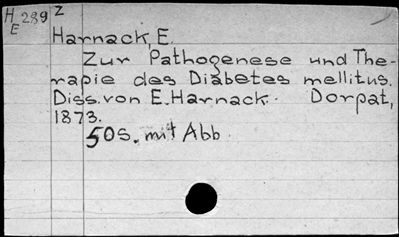 H 289 Z
E
Harnack, E.
Zur Pathogenese und The-
rapie des Diabetes mellitus.
Diss. von E. Harnack. Dorpat,
1873.
50S. mit Abb.